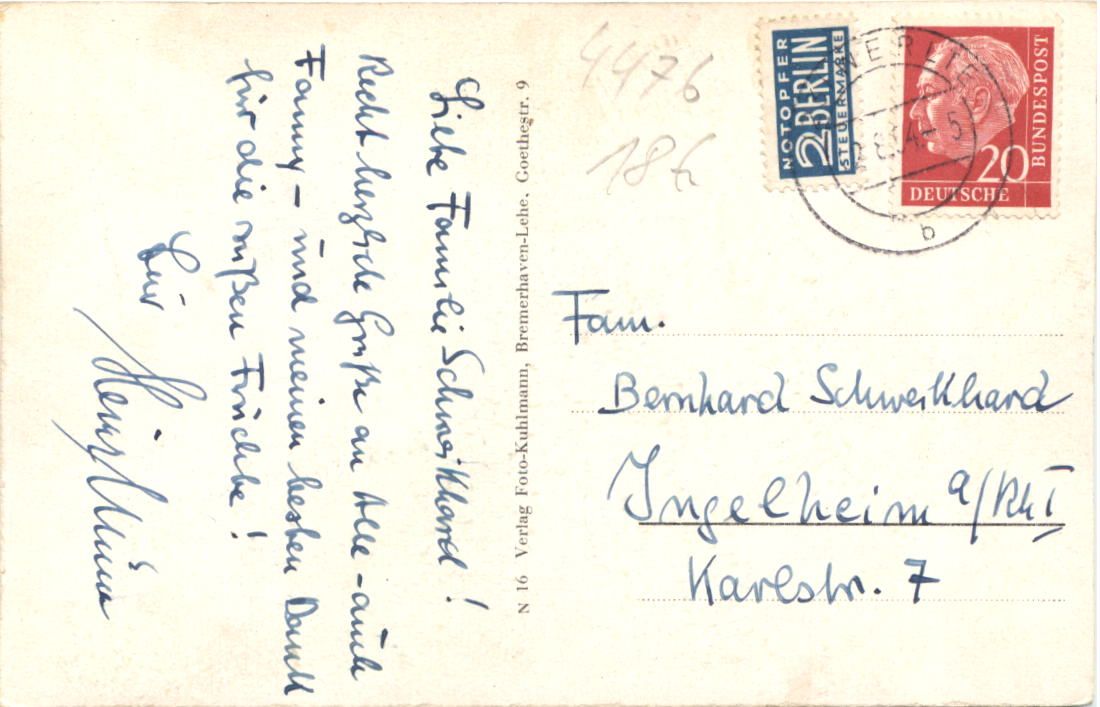 Liebe Familie Schweikhard!
Recht herzliche Grüße an Alle - auch
Fanny - und meinen besten Dank
für die süßen Früchte!
N 16 Verlag Foto-Kuhlmann, Bremerhaven-Lehe, Goethestr. 9
4476
NOTOPFER
2 BERLIN
STEUERMARKE
20
DEUTSCHE
BUNDESPOST
b
Fam.
Bernhard Schweikhard
Ingelheim a/Rh I
Karlstr. 7